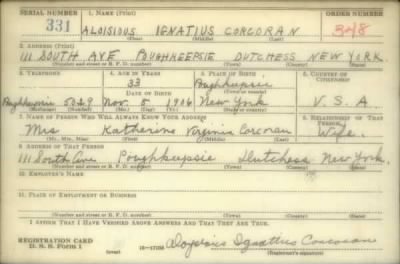 SERIAL NUMBER 1. NAME (Print) ORDER NUMBER
331 ALOISIOUS IGNATIUS CORCORAN 348
(First) (Middle) (Last)
2. ADDRESS (Print)
111 SOUTH AVE POUGHKEEPSIE DUTCHESS NEW YORK
(Number and street or R. F. D. number) (Town) (County) (State)
3. TELEPHONE 4. AGE IN YEARS 5. PLACE OF BIRTH 6. COUNTRY OF CITIZENSHIP
33 Poughkeepsie
DATE OF BIRTH (Town or county)
5029 Nov. 8 1906 New York U. S. A
(Exchange) (Number) (Mo.) (Day) (Yr.) (State or country)
7. NAME OF PERSON WHO WILL ALWAYS KNOW YOUR ADDRESS 8. RELATIONSHIP OF THAT PERSON
Mrs Katherine Virginia Corcoran Wife.
(Mr., Mrs., Miss) (First) (Middle) (Last)
9. ADDRESS OF THAT PERSON
111 South Ave. Poughkeepsie Dutchess New York.
(Number and street or R. F. D. number) (Town) (County) (State)
10. EMPLOYER'S NAME
11. PLACE OF EMPLOYMENT OR BUSINESS
(Number and street or R. F. D. number) (Town) (County) (State)
I AFFIRM THAT I HAVE VERIFIED ABOVE ANSWERS AND THAT THEY ARE TRUE.
REGISTRATION CARD
D. S. S. FORM 1 16—17105 Aloysious Ignatius Corcoran
(Registrant's signature)